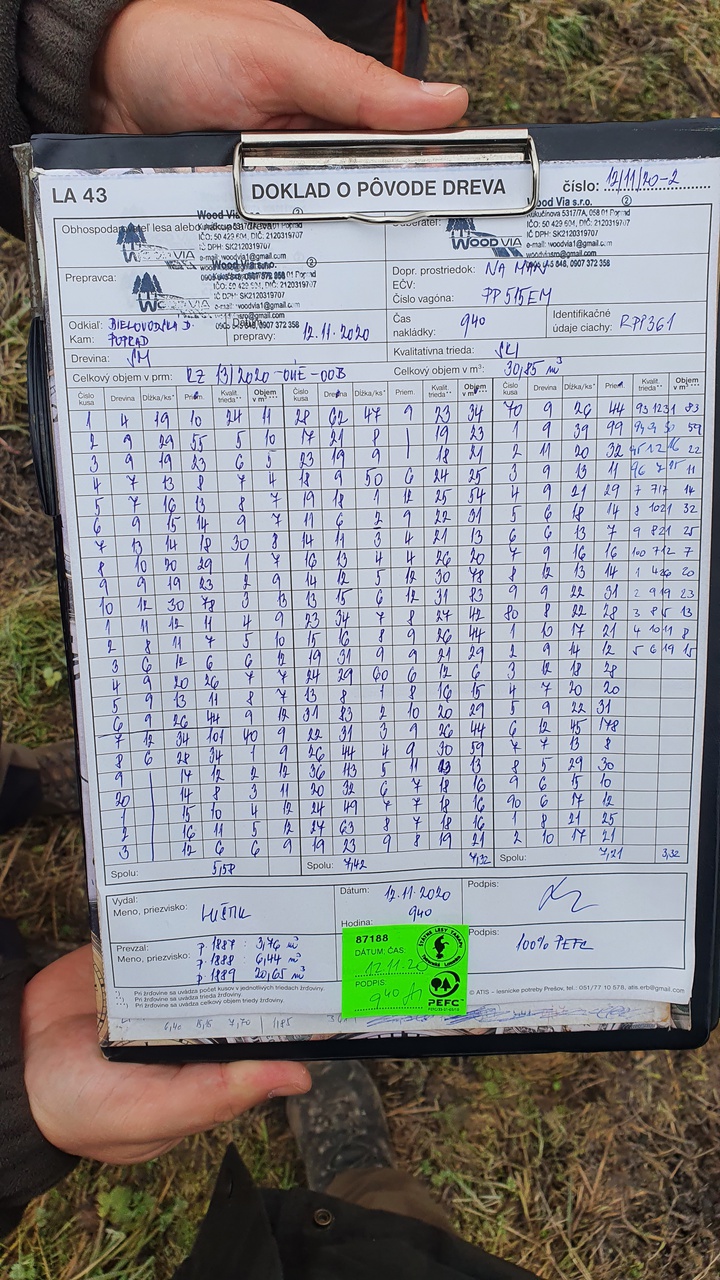 LA 43
DOKLAD O PÔVODE DREVA
číslo: 12/11/20-2
Obhospodarovateľ lesa alebo
Wood Via
IČO: 50 429 604, DIČ: 2120319707
IČ DPH: SK2120319707
e-mail: woodvia1@gmail.com
WOOD VIA
Odberateľ:
Wood Via s.r.o.
Kukučínova 5317/7A, 058 01 Poprad
IČO: 50 429 604, DIČ: 2120319707
IČ DPH: SK2120319707
e-mail: woodvia1@gmail.com
WOOD VIA
Prepravca:
Dopr. prostriedok: NA MAN
EČV:
Číslo vagóna: PP 515EM
Odkiaľ: BIELOVODSKÁ D.
Kam: POPRAD
prepravy: 12.11.2020
Čas
nakládky: 940
Identifikačné
údaje ciachy: RPP361
Drevina: SM
Kvalitatívna trieda:
Celkový objem v prm: RZ 13/2020-OUE-OOB
Celkový objem v m³: 30,85 m³
Číslo kusa Drevina Dĺžka/ks* Priem. Kvalit. trieda** Objem v m³ *** Číslo kusa Drevina Dĺžka/ks* Priem. Kvalit. trieda** Objem v m³ *** Číslo kusa Drevina Dĺžka/ks* Priem. Kvalit. trieda** Objem v m³ ***
1 4 19 10 24 11 28 62 47 9 23 34 70 9 26 44 93 12 31 83
2 9 29 55 5 10 17 21 8 | 19 23 1 9 39 99
3 9 19 23 6 5 23 19 9 | 18 21 2 11 20 32 22
4 7 13 8 7 4 18 9 50 6 24 25 3 9 13 11 96 7 15 11
5 7 16 13 8 7 19 18 1 12 25 54 4 9 21 29 7 7 17 14
6 9 15 14 9 7 11 6 2 9 22 31 5 6 18 14 8 10 21 32
7 13 14 18 30 8 14 11 3 4 21 13 6 6 13 7 9 8 21 25
8 10 20 29 1 7 16 13 4 4 26 20 7 9 16 16 100 7 12 7
9 9 19 23 2 9 14 12 5 12 30 78 8 12 13 14 1 4 26 20
10 12 30 78 3 13 13 15 6 12 31 83 9 9 22 31 2 9 19 23
1 11 12 11 4 9 23 34 7 8 27 42 80 8 22 28 3 8 15 13
2 8 11 7 5 10 15 16 8 9 26 44 1 10 17 21 4 10 11 8
3 6 12 6 6 12 19 31 9 9 21 29 2 9 14 12 5 6 19 15
4 9 20 26 7 7 24 29 60 6 12 6 3 12 18 28
5 9 13 11 8 7 13 8 1 8 16 15 4 7 20 20
6 9 26 44 9 12 31 83 2 10 20 29 5 9 22 31
7 12 34 101 40 9 22 31 3 9 26 44 6 12 45 178
8 6 28 34 1 9 26 44 4 9 30 59 7 7 13 8
9 | 17 12 2 12 36 113 5 11 23 13 8 5 29 30
20 | 14 8 3 11 20 32 6 7 18 16 9 6 15 10
1 | 15 10 4 12 24 49 7 7 18 16 90 6 17 12
2 | 16 11 5 12 27 63 8 7 18 16 1 8 21 25
3 | 12 6 6 9 19 23 9 8 19 21 2 10 17 21
Spolu: 5,58 Spolu: 7,42 7,32 Spolu: 7,21 3,32
Vydal:
Meno, priezvisko:
Dátum: 12.11.2020
Hodina: 940
Podpis:
Prevzal:
Meno, priezvisko:
P. 1887 : 3,76 m³
P. 1888 : 6,44 m³
P. 1889 20,65 m³
Podpis: 100% PEFC
87188
DÁTUM, ČAS:
12.11.20
PODPIS:
940
ŠTÁTNE LESY TANAPu
PEFC
*) Pri žrďovine sa uvádza počet kusov v jednotlivých triedach žrďoviny.
**) Pri žrďovine sa uvádza trieda žrďoviny.
***) Pri žrďovine sa uvádza celkový objem triedy žrďoviny.
© ATIS – lesnícke potreby Prešov, tel.: 051/77 10 578, atis.erb@gmail.com